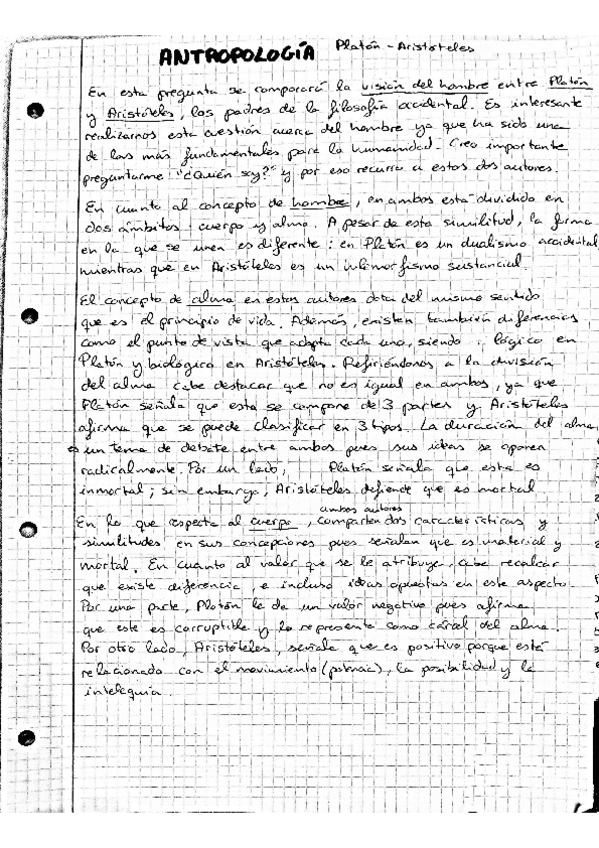 ANTROPOLOGÍA Platón - Aristóteles
En esta pregunta se comparará la visión del hombre entre Platón
y Aristóteles, los padres de la filosofía occidental. Es interesante
realizarnos esta cuestión acerca del hombre ya que ha sido una
de las más fundamentales para la humanidad. Creo importante
preguntarme "¿Quién soy?" y por eso recurro a estos dos autores.
En cuanto al concepto de hombre, en ambos está dividido en
dos ámbitos: cuerpo y alma. A pesar de esta similitud, la forma
en la que se unen es diferente: en Platón es un dualismo accidental
mientras que en Aristóteles es un sustancial.
El concepto de alma en estos autores dota del mismo sentido
que es el principio de vida. Además, existen también diferencias
como el punto de vista que adopta cada uno, siendo: lógico en
Platón y biológico en Aristóteles. Refiriéndonos a la división
del alma cabe destacar que no es igual en ambos, ya que
Platón señala que esta se compone de 3 partes y Aristóteles
afirma que se puede clasificar en 3 tipos. La duración del alma
es un tema de debate entre ambos pues sus ideas se oponen
radicalmente. Por un lado, Platón señala que esta es
inmortal; sin embargo, Aristóteles defiende que es mortal.
ambos autores
En lo que respecta al cuerpo, comparten dos características y
similitudes en sus concepciones pues señalan que es material y
mortal. En cuanto al valor que se le atribuye, cabe recalcar
que existe diferencia, e incluso ideas opuestas en este aspecto.
Por una parte, Platón le da un valor negativo pues afirma
que este es corruptible y lo representa como cárcel del alma.
Por otro lado, Aristóteles, señala que es positivo porque está
relacionado con el movimiento (potencia), la posibilidad y la